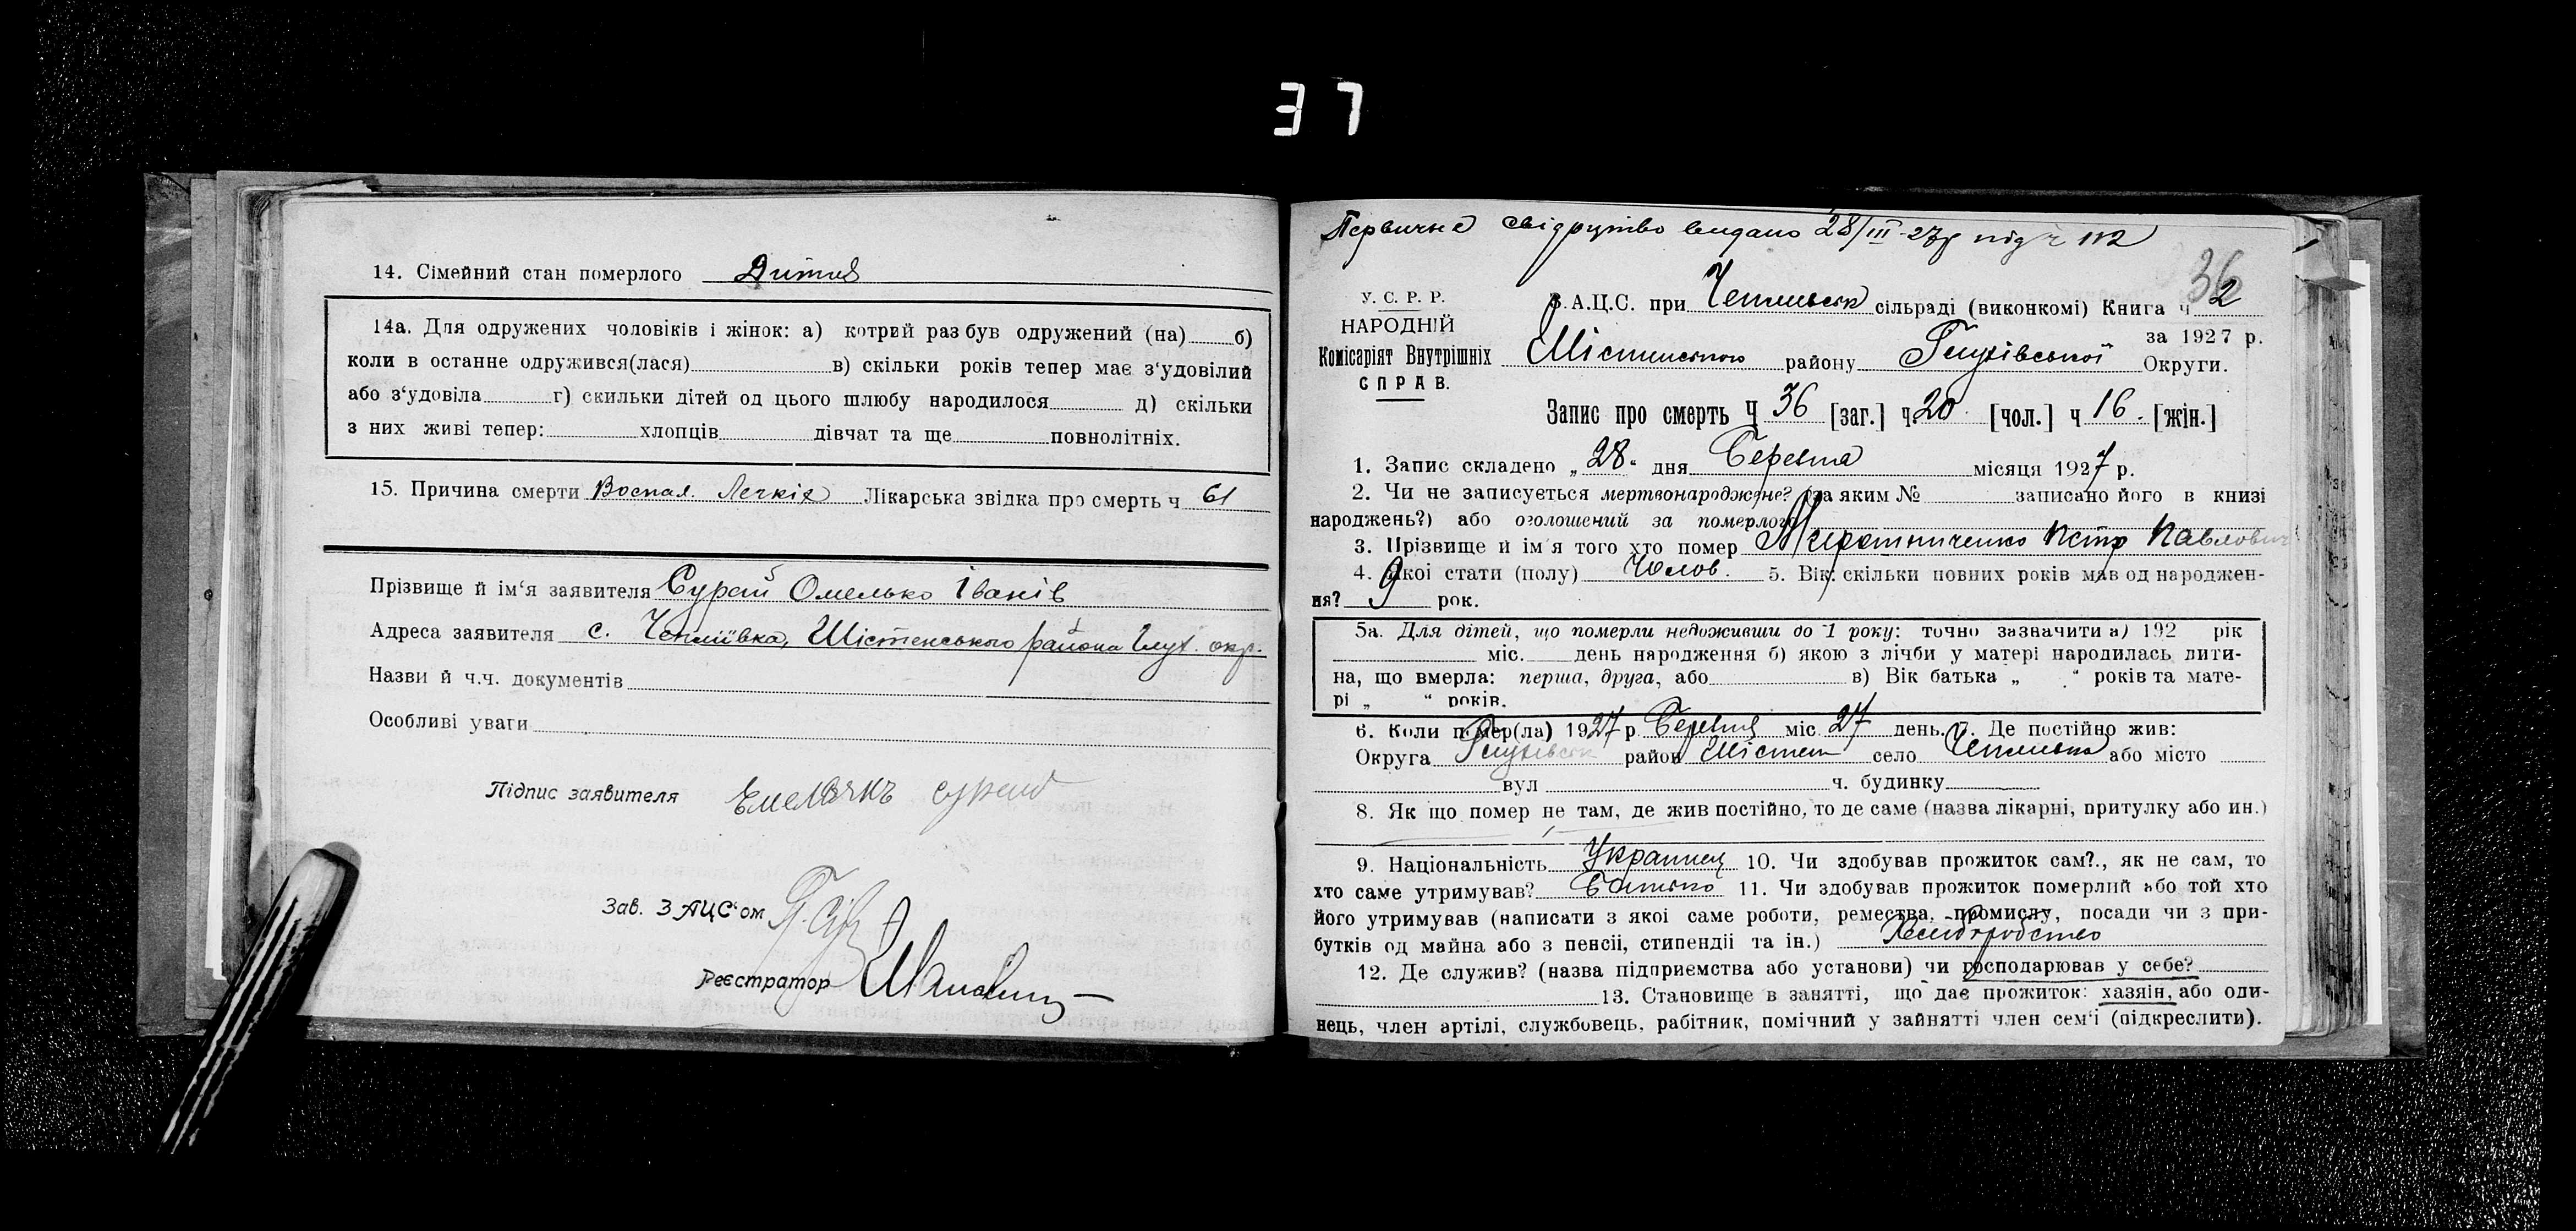 37
14. Сімейний стан померлого Дитина
14а. Для одружених чоловіків і жінок: а) котрий раз був одружений (на) б)
коли в останне одружився(лася) в) скільки років тепер має з‘удовілий
або з‘удовіла г) скильки дітей од цього шлюбу народилося д) скільки
з них живі тепер: хлопців дівчат та ще повнолітніх.
15. Причина смерти Воспал. Легкіх Лікарська звідка про смерть ч 61
Прізвище й ім‘я заявителя Сурай Омелько Іванів
Адреса заявителя с. Чепліївка, Шістенського района Глух. окр.
Назви й ч.ч. документів
Особливі уваги
Підпис заявителя Емелянъ Сурай
Зав. ЗАЦС‘ом
Реєстратор
Первичне свідоцтво видано 28/III-27р під ч 112
36
У. С. Р. Р.
НАРОДНІЙ
Комісаріят Внутрішніх
СПРАВ.
З.А.Ц.С. при Чепліевськ сільраді (виконкомі) Книга ч 2
за 1927 р.
Шістенського району Глухівської Округи.
Запис про смерть Ч 36 [заг.] ч 20 [чол.] ч 16. [жін.]
1. Запис складено „28“ дня Березня місяця 1927 р.
2. Чи не записується мертвонароджене? (за яким № записано його в книзі
народжень?) або оголошений за померлого
3. Прізвище й ім‘я того хто помер Мирошниченко Петр Павлович
4. Якоі стати (полу) Чолов. 5. Вік: скільки повних років мав од народжен-
ня? 9 рок.
5а. Для дітей, що померли недоживши до 1 року: точно зазначити а) 192 рік
міс. день народження б) якою з лічби у матері народилась дити-
на, що вмерла: перша, друга, або в) Вік батька „ “ років та мате-
рі „ “ років.
6. Коли помер(ла) 1927 р Березня міс 27 день. 7. Де постійно жив:
Округа Глухівськ район Шістен село Чепліевка або місто
вул ч. будинку
8. Як що помер не там, де жив постійно, то де саме (назва лікарні, притулку або ин.)
9. Національність Українец 10. Чи здобував прожиток сам?., як не сам, то
хто саме утримував? Батько 11. Чи здобував прожиток померлий або той хто
його утримував (написати з якоі саме роботи, ремества, промислу, посади чи з при-
бутків од майна або з пенсіі, стипендіі та ін.) Хліборобство
12. Де служив? (назва підприємства або установи) чи господарював у себе?
13. Становище в занятті, що дає прожиток: хазяін, або оди-
нець, член артілі, службовець, рабітник, помічний у зайнятті член сем‘і (підкреслити).